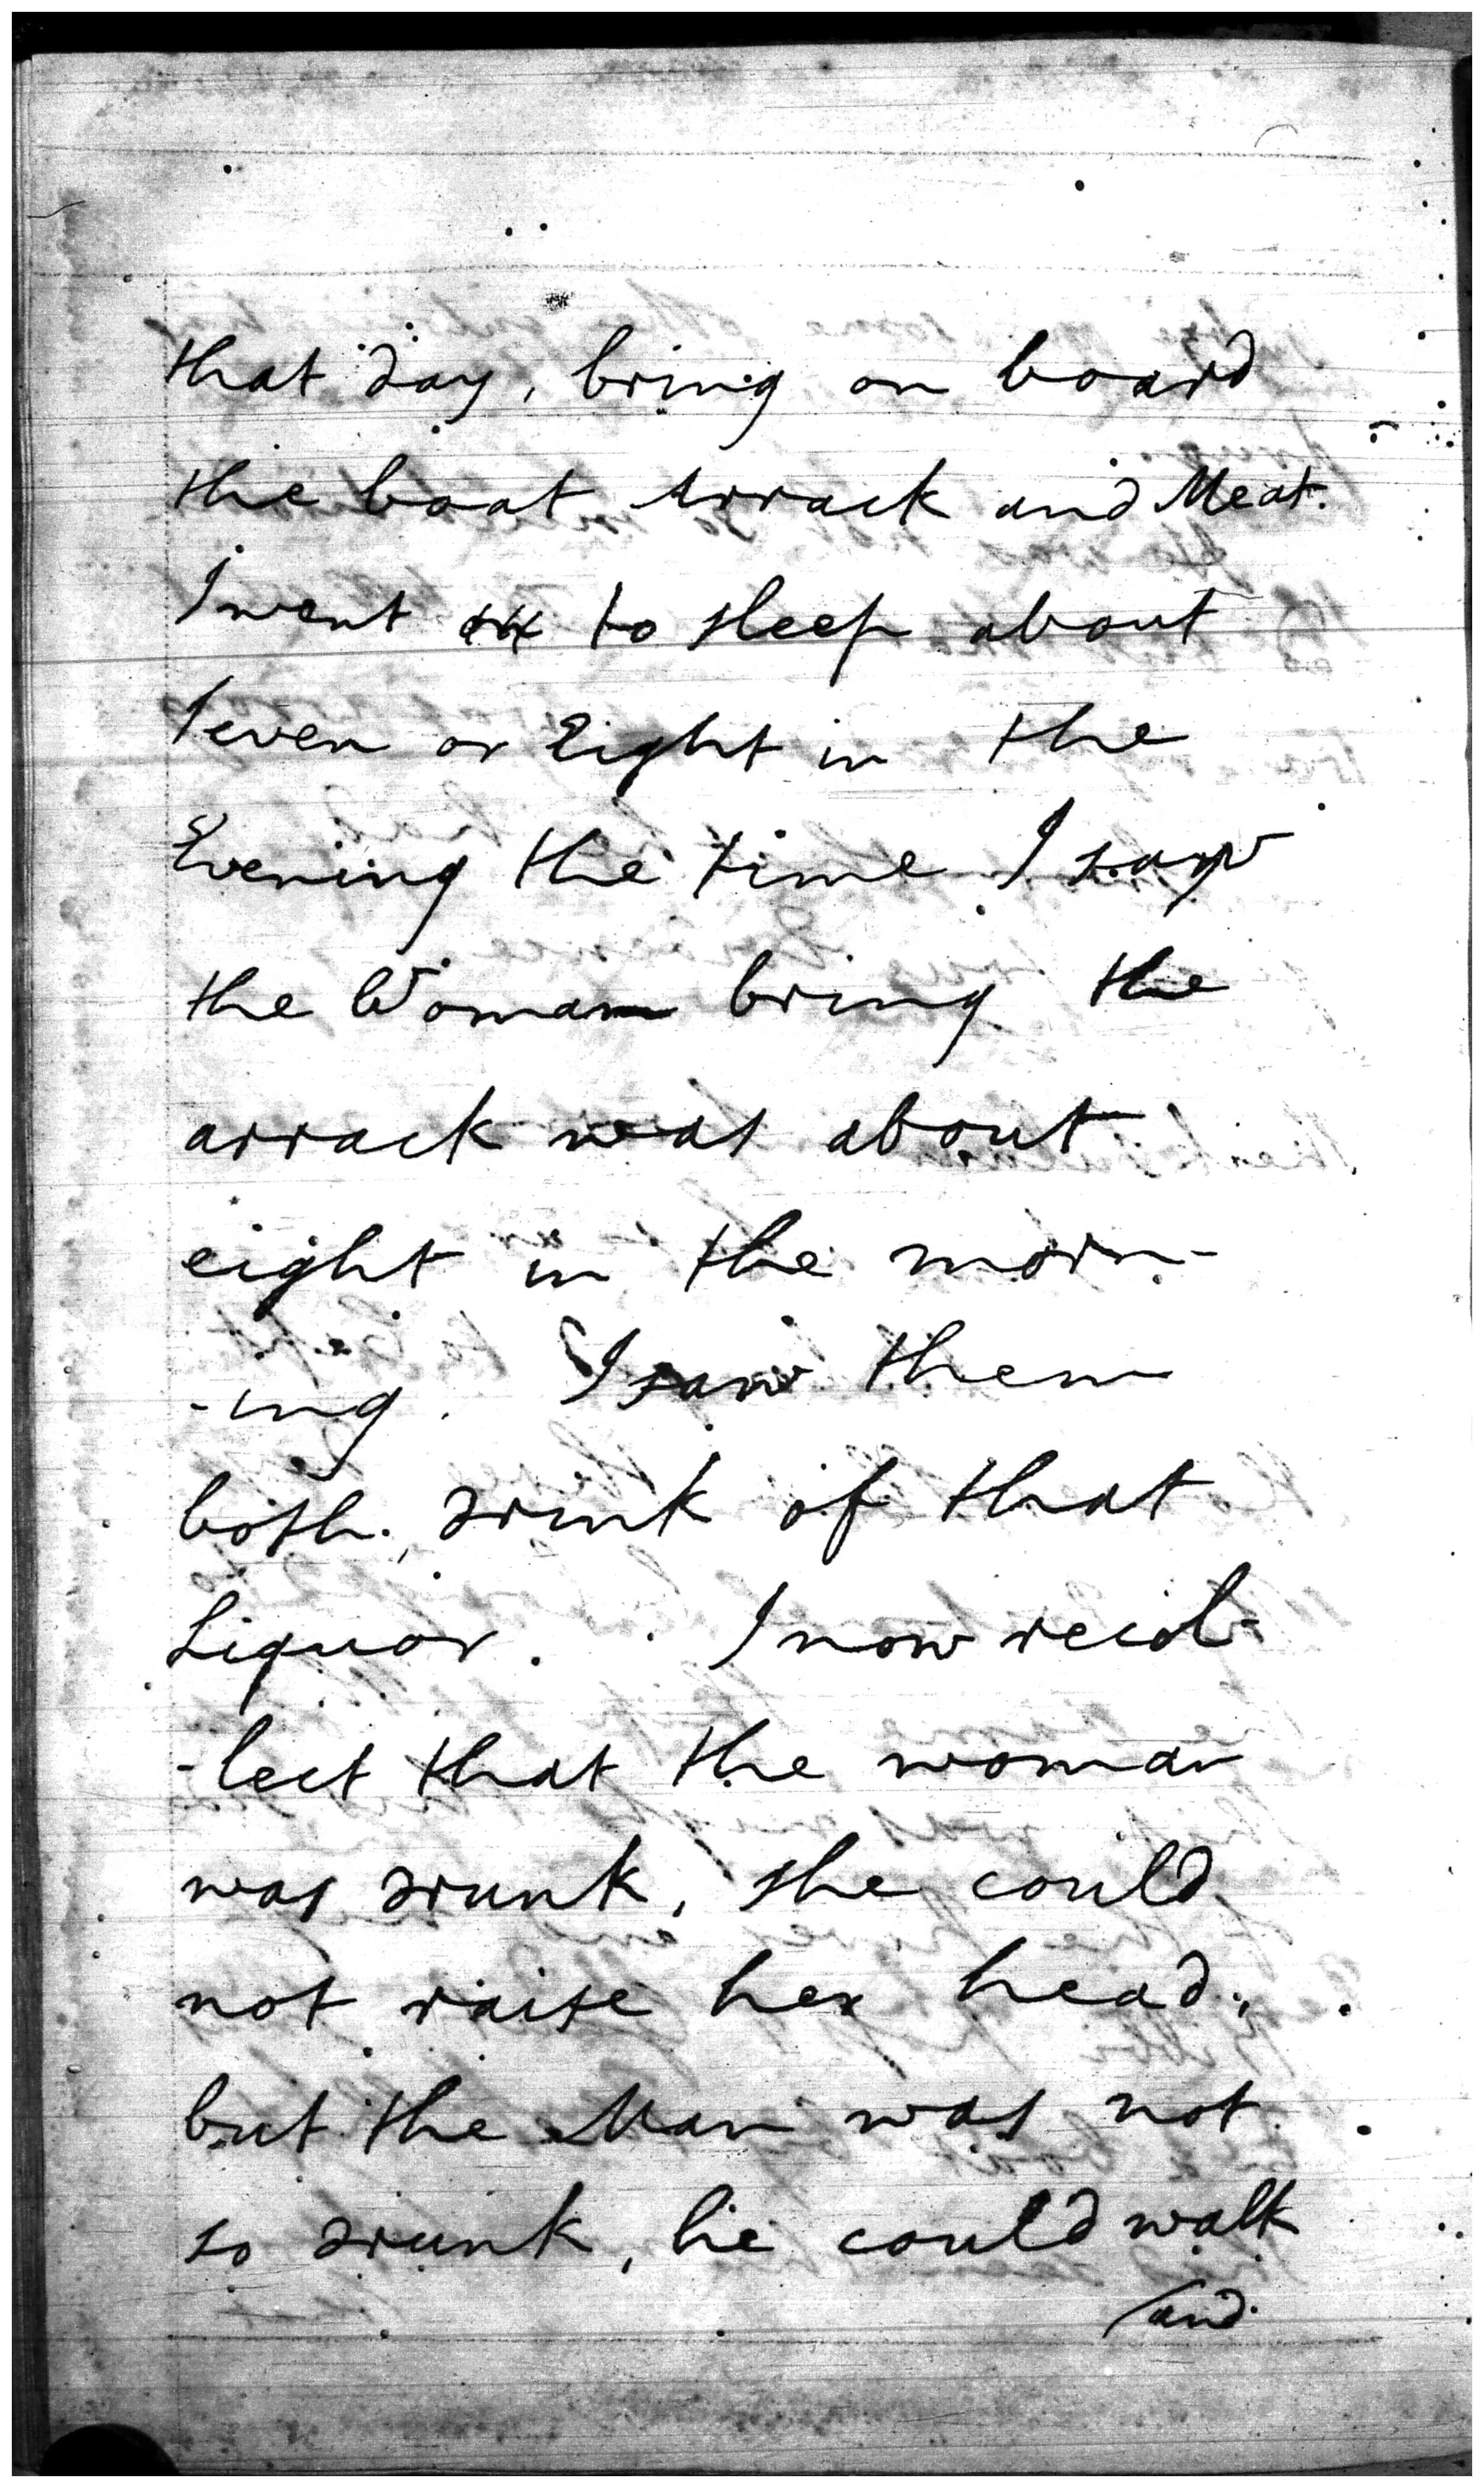 that day, bring on board
the boat Arrack and Meat.
I went to sleep about
Seven or Eight in the
Evening the time I saw
the Woman bring the
arrack was about
eight in the morn-
-ing. I saw them
both, drink of that
Liquor. I now recol-
-lect that the woman
was drunk, she could
not raise her head,
but the Man was not
so drunk, he could walk
and